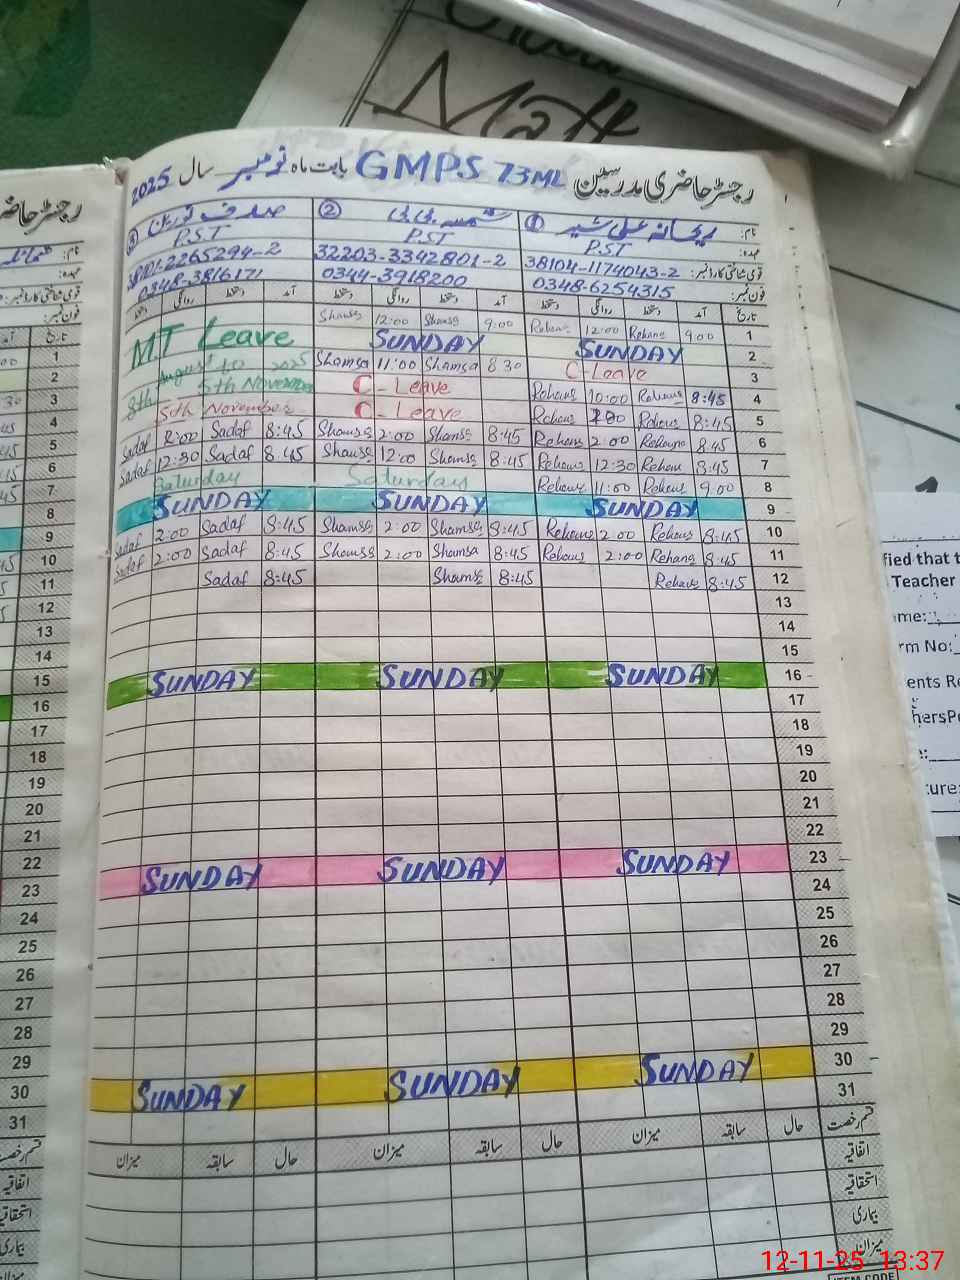 Math
رجسٹر حاضری مدرسین GMPS 73ML بابت ماہ نومبر سال 2025
نام: ① ریحانہ علی شیر ② شمسہ بی بی ③ صدف نورین
عہدہ: P.S.T P.S.T P.S.T
قومی شناختی کارڈ نمبر: 38104-1174043-2 32203-3342801-2 38101-2265294-2
فون نمبر: 0348-6254315 0344-3918200 0348-3816171
تاریخ آمد دستخط روانگی دستخط آمد دستخط روانگی دستخط آمد دستخط روانگی دستخط
MT Leave Shamsa 12:00 Shamsa 9:00 Rehana 12:00 Rehana 9:00 1
SUNDAY SUNDAY 2
August to 2025 Shamsa 11:00 Shamsa 8 30 C-Leave 3
8th 5th November C-Leave Rehana 10:00 Rehana 8:45 4
5th November C-Leave Rehana Rehana 8:45 5
Sadaf 2:00 Sadaf 8:45 Shamsa 2:00 Shamsa 8:45 Rehana 2:00 Rehana 8:45 6
Sadaf 12:30 Sadaf 8:45 Shamsa 12:00 Shamsa 8:45 Rehana 12:30 Rehana 8:45 7
Saturday Saturday Rehana 11:00 Rehana 9.00 8
SUNDAY SUNDAY SUNDAY 9
Sadaf 2:00 Sadaf 8:45 Shamsa 2:00 Shamsa 8:45 Rehana 2:00 Rehana 8:45 10
Sadaf 2:00 Sadaf 8:45 Shamsa 2:00 Shamsa 8:45 Rehana 2:00 Rehana 8:45 11
Sadaf 8:45 Shamsa 8:45 Rehana 8:45 12
13
14
15
SUNDAY SUNDAY SUNDAY 16
17
18
19
20
21
22
SUNDAY SUNDAY SUNDAY 23
24
25
26
27
28
29
SUNDAY SUNDAY SUNDAY 30
31
قسم رخصت حال سابقہ میزان حال سابقہ میزان حال سابقہ میزان
اتفاقیہ
استحقاقیہ
بیماری
میزان
رجسٹر حاضری
نام:
عہدہ:
قومی شناختی کارڈ نمبر:
فون نمبر:
تاریخ
1
2
3
4
5
6
7
8
9
10
11
12
13
14
15
16
17
18
19
20
21
22
23
24
25
26
27
28
29
30
31
قسم رخصت
اتفاقیہ
بیماری
fied that t
Teacher
me:
rm No:
ents Re
hersPe
ure:
ITEM CODE
12-11-25 13:37